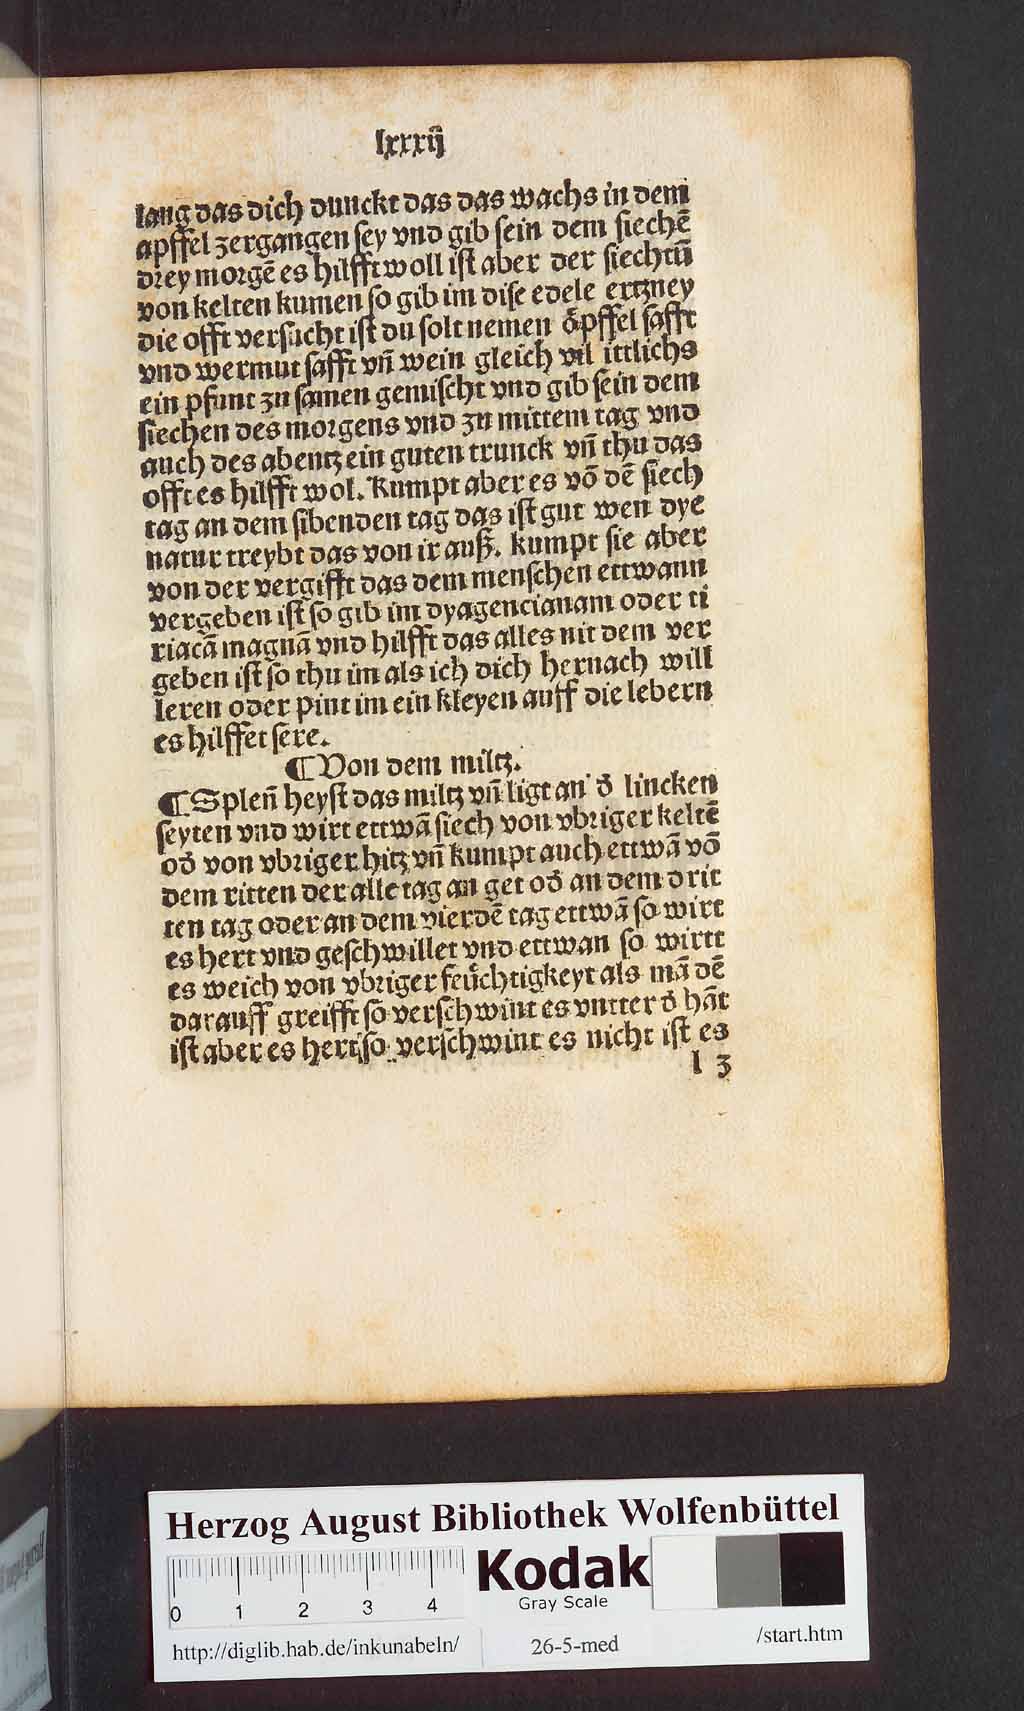 lxxxij
lang das dich dunckt das das wachs in dem
apffel zergangen sey vnd gib sein dem siechē
drey morgē es hilfft woll ist aber der siechtū
von kelten kumen so gib im dise edele ertzney
die offt versucht ist du solt nemen öpffel safft
vnd wermut safft vn̄ wein gleich vil ittlichs
ein pfunt zu samen gemischt vnd gib sein dem
siechen des morgens vnd zu mittem tag vnd
auch des abentz ein guten trunck vn̄ thu das
offt es hilfft wol. Kumpt aber es vō dē siech
tag an dem sibenden tag das ist gut wen dye
natur treybt das von ir auß. kumpt sie aber
von der vergifft das dem menschen ettwann
vergeben ist so gib im dyagencianam oder ti
riacā magnā vnd hilfft das alles nit dem ver
geben ist so thu im als ich dich hernach will
leren oder pint im ein kleyen auff die lebern
es hilffet sere.
¶ Von dem miltz.
¶ Splen̄ heyst das miltz vn̄ ligt an d̄ lincken
seyten vnd wirt ettwā siech von vbriger keltē
od̄ von vbriger hitz vn̄ kumpt auch ettwā vō
dem ritten der alle tag an get od̄ an dem drit
ten tag oder an dem vierdē tag ettwā so wirt
es hert vnd geschwillet vnd ettwan so wirtt
es weich von vbriger feüchtigkeyt als mā dē
darauff greifft so verschwint es vntter d̄ hāt
ist aber es hert so verschwint es nicht ist es
l 3
Herzog August Bibliothek Wolfenbüttel
Kodak
Gray Scale
0 1 2 3 4
http://diglib.hab.de/inkunabeln/
26-5-med
/start.htm